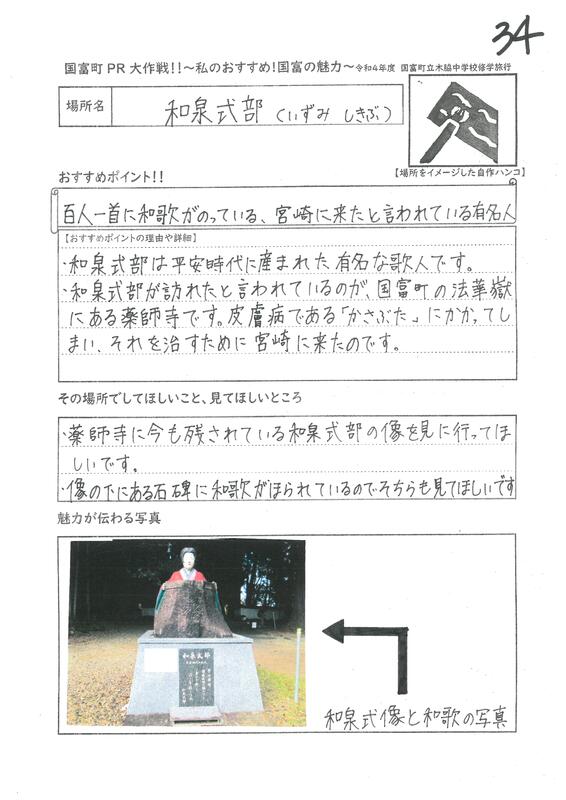 34
国富町PR大作戦!!～私のおすすめ!国富の魅力～令和4年度 国富町立木脇中学校修学旅行
場所名 和泉式部（いずみ しきぶ）
【場所をイメージした自作ハンコ】
おすすめポイント!!
百人一首に和歌がのっている、宮崎に来たと言われている有名人
【おすすめポイントの理由や詳細】
・和泉式部は平安時代に産まれた有名な歌人です。
・和泉式部が訪れたと言われているのが、国富町の法華嶽
にある薬師寺です。皮膚病である「かさぶた」にかかってし
まい、それを治すために宮崎に来たのです。
その場所でしてほしいこと、見てほしいところ
・薬師寺に今も残されている和泉式部の像を見に行ってほ
しいです。
・像の下にある石碑に和歌がほられているのでそちらも見てほしいです
魅力が伝わる写真
和泉式部
和泉式像と和歌の写真